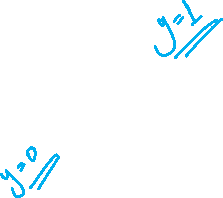 y=1
y=0